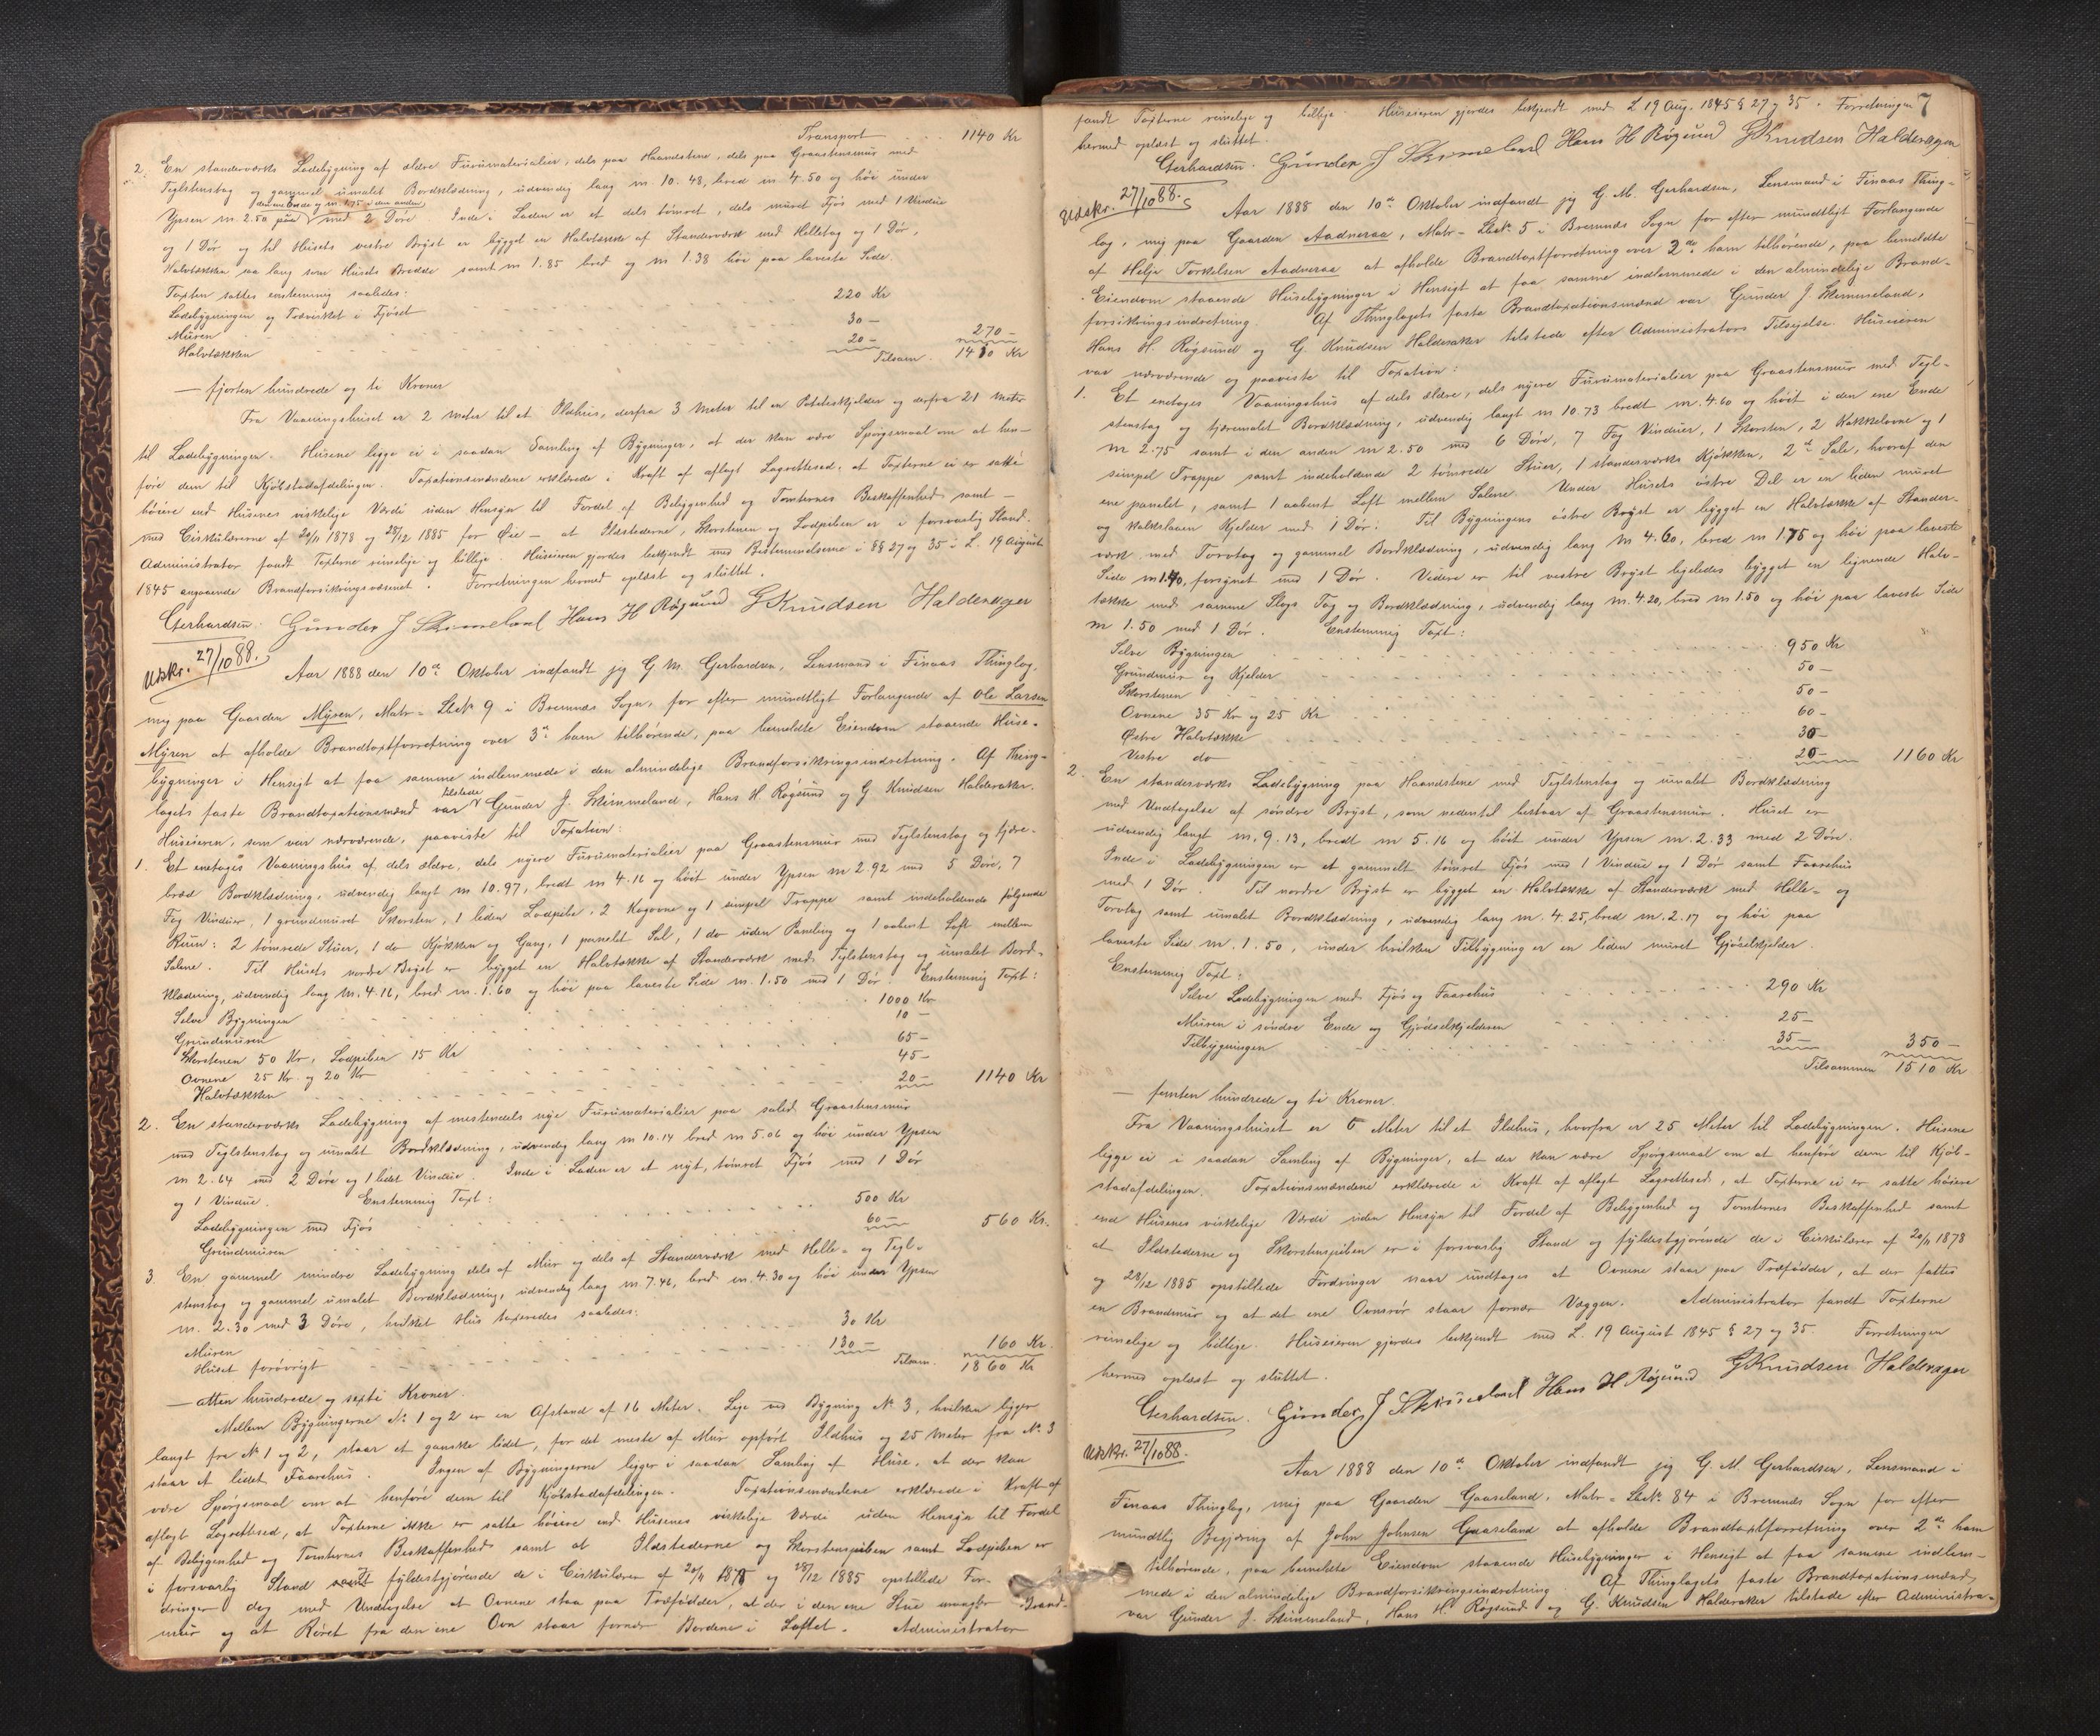 Transport . . . 1140 Kr
2. En standerværks Ladebygning af ældre Furumaterialier, dels paa Haandstene, dels paa Graastensmur med
Teglstenstag og gammel umalet Bordklædning, udvendig lang m. 10.48, bred m 4.50 og høi under
den ene Ende og m. 1.75 i den anden
Ypsen m 2.50 paa med 2 Døre. Inde i Laden er et dels tømret, dels muret Fjøs med 1 Vindue
og 1 Dør og til Husets vestre Bryst er bygget en Halvtække af Standerværk med Helletag og 1 Dør,
Halvtækken saa lang som Husets Bredde samt m 1.85 bred og m 1.38 høi paa laveste Side.
Taxten sattes enstemmig saaledes:
Ladebygningen og Træværket i Fjøset 220 Kr
Muren 30 —
Halvtækken 20 — 270 —
Tilsam. 1410 Kr
— fjorten hundrede og ti Kroner
Fra Vaaningshuset er 2 Meter til et Ildhus, derfra 3 Meter til en Poteteskjelder og derfra 21 Meter
til Ladebygningen. Husene ligge ei i saadan Samling af Bygninger, at der kan være Spørgsmaal om at hen-
føre dem til Kjøbstadafdelingen. Taxationsmændene erklærede i Kraft af aflagt Lagrettesed, at Taxterne ei er satte
høiere end Husenes virkelige Værdi uden Hensyn til Fordel af Beliggenhed og Tomternes Beskaffenhed samt —
med Cirkulærerne af 20/11 1878 og 28/12 1885 for Øie — at Ildstederne, Skorstenen og Lodpiben er i forsvarlig Stand.
Administrator fandt Taxterne rimelige og billige. Huseieren gjordes bekjendt med Bestemmelserne i §§ 27 og 35 i L. 19 August
1845 angaaende Brandforsikringsvæsenet. Forretningen hermed oplæst og sluttet.
Gerhardsen. Gunder J Skimeland Hans H Røgsund G Knudsen Halderager
Udskr. 27/10 88.
Aar 1888 den 10de Oktober indfandt jeg G. M. Gerhardsen, Lensmand i Finaas Thinglag,
mig paa Gaarden Myren, Matr-Løbe№ 9 i Bremnæs Sogn, for efter mundtligt Forlangende af Ole Larsen
Myren at afholde Brandtaxtforretning over 3de ham tilhørende, paa bemeldte Eiendom staaende Huse-
bygninger i Hensigt at faa samme indlemmede i den almindelige Brandforsikringsindretning. Af Thing-
tilstede
lagets faste Brandtaxationsmænd var Gunder J. Skimmeland, Hans H. Røgsund og G Knudsen Halderaker.
Huseieren, som var nærværende, paaviste til Taxation:
1. Et enetages Vaaningshus af dels ældre, dels nyere Furumaterialier paa Graastensmur med Teglstenstag og tjære-
bræd Bordklædning, udvendig langt m 10.97, bredt m 4.16 og høit under Ypsen m 2.92 med 5 Døre, 7
Fag Vinduer, 1 grundmuret Skorsten, 1 liden Lodpibe, 2 Kogovne og 1 simpel Trappe samt indeholdende følgende
Rum: 2 tømrede Stuer, 1 do Kjøkken og Gang, 1 panelt Sal, 1 do uden Paneling og 1 aabent Loft mellem
Salene. Til Husets nordre Bryst er bygget en Halvtække af Standerværk med Teglstenstag og umalet Bord-
klædning, udvendig lang m. 4.16, bred m. 1.60 og høi paa laveste Side m. 1.50 med 1 Dør. Enstemmig Taxt:
Selve Bygningen 1000 Kr
Grundmuren 10 —
Skorstenen 50 Kr, Lodpiben 15 Kr 65 —
Ovnene 25 Kr. og 20 Kr 45 —
Halvtækken 20 — 1140 Kr
2. En standerværks Ladebygning af mestendels nye Furumaterialier paa solid Graastensmur
med Teglstenstag og umalet Bordklædning, udvendig lang m 10.14 bred m 5.06 og høi under Ypsen
m 2.64 med 2 Døre og 1 lidet Vindue. Inde i Laden er et nyt, tømret Fjøs med 1 Dør
og 1 Vindue. Enstemmig Taxt:
Ladebygningen med Fjøs 500 Kr
Grundmuren 60 — 560 Kr.
3. En gammel mindre Ladebygning dels af Mur og dels af Standerværk med Helle- og Tegl-
stenstag og gammel umalet Bordklædning, udvendig lang m. 7.46, bred m. 4.30 og høi under Ypsen
m. 2.30 med 3 Døre, hvilket Hus taxeredes saaledes:
Muren 30 Kr
Huset forøvrigt 130 — 160 Kr.
Tilsam. 1860 Kr
— atten hundrede og sexti Kroner.
Mellem Bygningerne № 1 og 2 er en Afstand af 16 Meter. Lige ved Bygning № 3, hvilken ligger
langt fra № 1 og 2, staar et ganske lidet, for det meste af Mur opført Ildhus og 25 Meter fra № 3
staar et lidet Faarehus. Ingen af Bygningerne ligger i saadan Samling af Huse, at der kan
være Spørgsmaal om at henføre dem til Kjøbstadafdelingen. Taxationsmændene erklærede i Kraft af
aflagt Lagrettesed, at Taxterne ikke er satte høiere end Husenes virkelige Værdi uden Hensyn til Fordel
af Beliggenhed og Tomternes Beskaffenhed samt at Ildstederne og Skorstenspiben samt Lodpiben er
i forsvarlig Stand fyldestgjørende de i Cirkulærer af 20/11 1878 og 28/12 1885 opstillede For-
dringer dog med Undtagelse at Ovnene staa paa Træfødder, at der i den ene Stue mangler Brand-
mur og at Røret fra den ene Ovn staar fornær Bordene i Loftet. Administrator
7
fandt Taxterne rimelige og billige. Huseieren gjordes bekjendt med L 19 Aug. 1845 § 27 og 35. Forretningen
hermed oplæst og sluttet.
Gerhardsen. Gunder J Skimeland Hans H Røgsund G Knudsen Halderager
Udskr. 27/10 88.
Aar 1888 den 10de Oktober indfandt jeg G. M. Gerhardsen, Lensmand i Finaas Thing-
lag, mig paa Gaarden Aadneraa, Matr-Løbe№ 5 i Bremnæs Sogn for efter mundtligt Forlangende
af Helje Torkelsen Aadneraa at afholde Brandtaxtforretning over 2de ham tilhørende, paa bemeldte
Eiendom staaende Husebygninger i Hensigt at faa samme indlemmede i den almindelige Brand-
forsikringsindretning. Af Thinglagets faste Brandtaxationsmænd var Gunder J. Skimmeland,
Hans H. Røgsund og G. Knudsen Halderaker tilstede efter Administrators Tilsigelse. Huseieren
var nærværende og paaviste til Taxation:
1. Et enetages Vaaningshus af dels ældre, dels nyere Furumaterialier paa Graastensmur med Tegl-
stenstag og tjæremalet Bordklædning, udvendig langt m 10.73 bredt m. 4.60 og høit i den ene Ende
m 2.75 samt i den anden m 2.50 med 6 Døre, 7 Fag Vinduer, 1 Skorsten, 2 Kakkelovne og 1
simpel Trappe samt indeholdende 2 tømrede Stuer, 1 standerværks Kjøkken, 2de Sale, hvoraf den
ene panelet, samt 1 aabent Loft mellem Salene. Under Husets østre Del er en liden muret
og kalkslaaen Kjelder med 1 Dør. Til Bygningens østre Bryst er bygget en Halvtække af Stander-
værk med Torvtag og gammel Bordklædning, udvendig lang m 4.60, bred m 1.75 og høi paa laveste
Side m 1.40, forsynet med 1 Dør. Videre er til vestre Bryst ligeledes bygget en lignende Halv-
tække med samme Slags Tag og Bordklædning, udvendig lang m. 4.20, bred m 1.50 og høi paa laveste Side
m 1.50 med 1 Dør. Enstemmig Taxt:
Selve Bygningen 950 Kr
Grundmur og Kjelder 50 —
Skorstenen 50 —
Ovnene 35 Kr og 25 Kr 60 —
Østre Halvtække 30 —
Vestre do 20 — 1160 Kr
2. En standerværks Ladebygning paa Haandstene med Teglstenstag og umalet Bordklædning
med Undtagelse af søndre Bryst, som nedentil bestaar af Graastensmur. Huset er
udvendig langt m. 9.13, bredt m 5.16 og høit under Ypsen m. 2.33 med 2 Døre.
Inde i Ladebygningen er et gammelt tømret Fjøs med 1 Vindue og 1 Dør samt Faarehus
med 1 Dør. Til nordre Bryst er bygget en Halvtække af Standerværk med Helle- og
Torvtag samt umalet Bordklædning, udvendig lang m. 4.25, bred m. 2.17 og høi paa
laveste Side m. 1.50, under hvilken Tilbygning er en liden muret Gjødselkjelder.
Enstemmig Taxt:
Selve Ladebygningen med Fjøs og Faarehus 290 Kr
Muren i søndre Ende og Gjødselkjelderen 25 —
Tilbygningen 35 — 350 —
Tilsammen 1510 Kr
— femten hundrede og ti Kroner.
Fra Vaaningshuset er 6 Meter til et Ildhus, hvorfra er 25 Meter til Ladebygningen. Husene
ligge ei i saadan Samling af Bygninger, at der kan være Spørgsmaal om at henføre dem til Kjøb-
stadafdelingen. Taxationsmændene erklærede i Kraft af aflagt Lagrettesed, at Taxterne ei er satte høiere
end Husenes virkelige Værdi uden Hensyn til Fordel af Beliggenhed og Tomternes Beskaffenhed samt
at Ildstederne og Skorstenspiben er i forsvarlig Stand og fyldestgjørende de i Cirkulærer af 20/11 1878
og 28/12 1885 opstillede Fordringer naar undtages at Ovnene staar paa Træfødder, at der fattes
en Brandmur og at det ene Ovnsrør staar fornær Væggen. Administrator fandt Taxterne
rimelige og billige. Huseieren gjordes bekjendt med L. 19 August 1845 § 27 og 35. Forretningen
hermed oplæst og sluttet.
Gerhardsen. Gunder J Skimeland Hans H Røgsund G Knudsen Halderager
Udskr. 27/10 88.
Aar 1888 den 10de Oktober indfandt jeg G. M. Gerhardsen, Lensmand i
Finaas Thinglag, mig paa Gaarden Gaaseland, Matr-Løbe№ 84 i Bremnæs Sogn for efter
mundtlig Begjæring af John Johnsen Gaaseland at afholde Brandtaxtforretning over 2de ham
tilhørende, paa bemeldte Eiendom staaende Husebygninger i Hensigt at faa samme indlem-
mede i den almindelige Brandforsikringsindretning. Af Thinglagets faste Brandtaxationsmænd
var Gunder J. Skimmeland, Hans H. Røgsund og G. Knudsen Halderaker tilstede efter Administra-